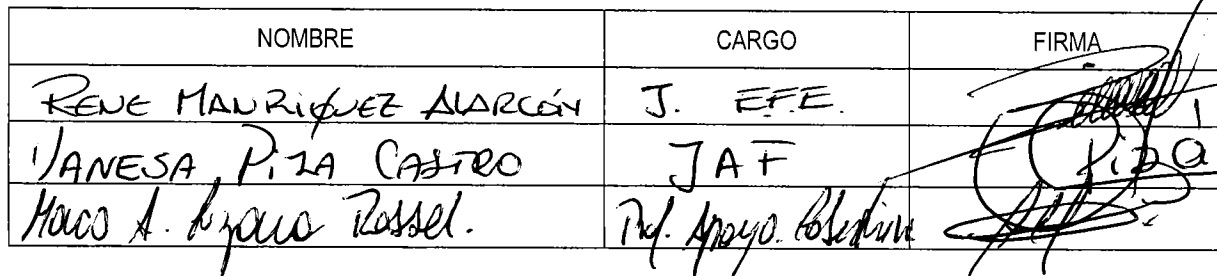 NOMBRE CARGO FIRMA
RENE MANRIQUEZ ALARCÓN J. EFE.
VANESA PIZA CASTRO JAF Piza
A. Rossel. Prof. Apoyo.